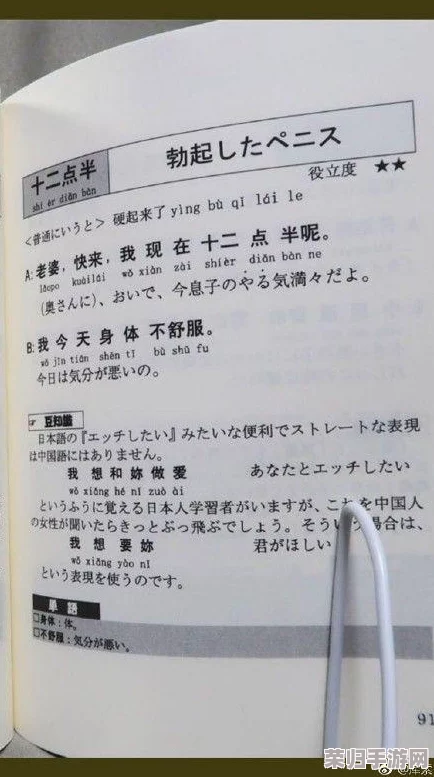 十二点半
shí èr diǎn bàn
勃起したペニス
役立度 ★★
＜普通にいうと＞ 硬起来了 yìng bù qǐ lái le
A:老婆，快来，我 现 在 十二 点 半呢。
lǎopo kuàilái wǒ xiàn zài shíèr diǎn bàn ne
（奥さんに）、おいで、今息子のやる気満々だよ。
B:我 今 天 身 体 不舒服。
wǒ jīn tiān shēn tǐ bù shū fu
今日は気分が悪いの。
☞ 豆知識
日本語の『エッチしたい』みたいな便利でストレートな表現
は中国語にはありません。
我 想 和 妳 做 爱 あなたとエッチしたい
wǒ xiǎng hé nǐ zuò ài
というふうに覚える日本人学習者がいますが、これを中国人
の女性が聞いたらきっとぶっ飛ぶでしょう。そういう場合は、
我 想 要 妳 君がほしい
wǒ xiǎng yào nǐ
という表現を使うのです。
単 語
□身体：体。
□不舒服：気分が悪い。
91
荣归手游网